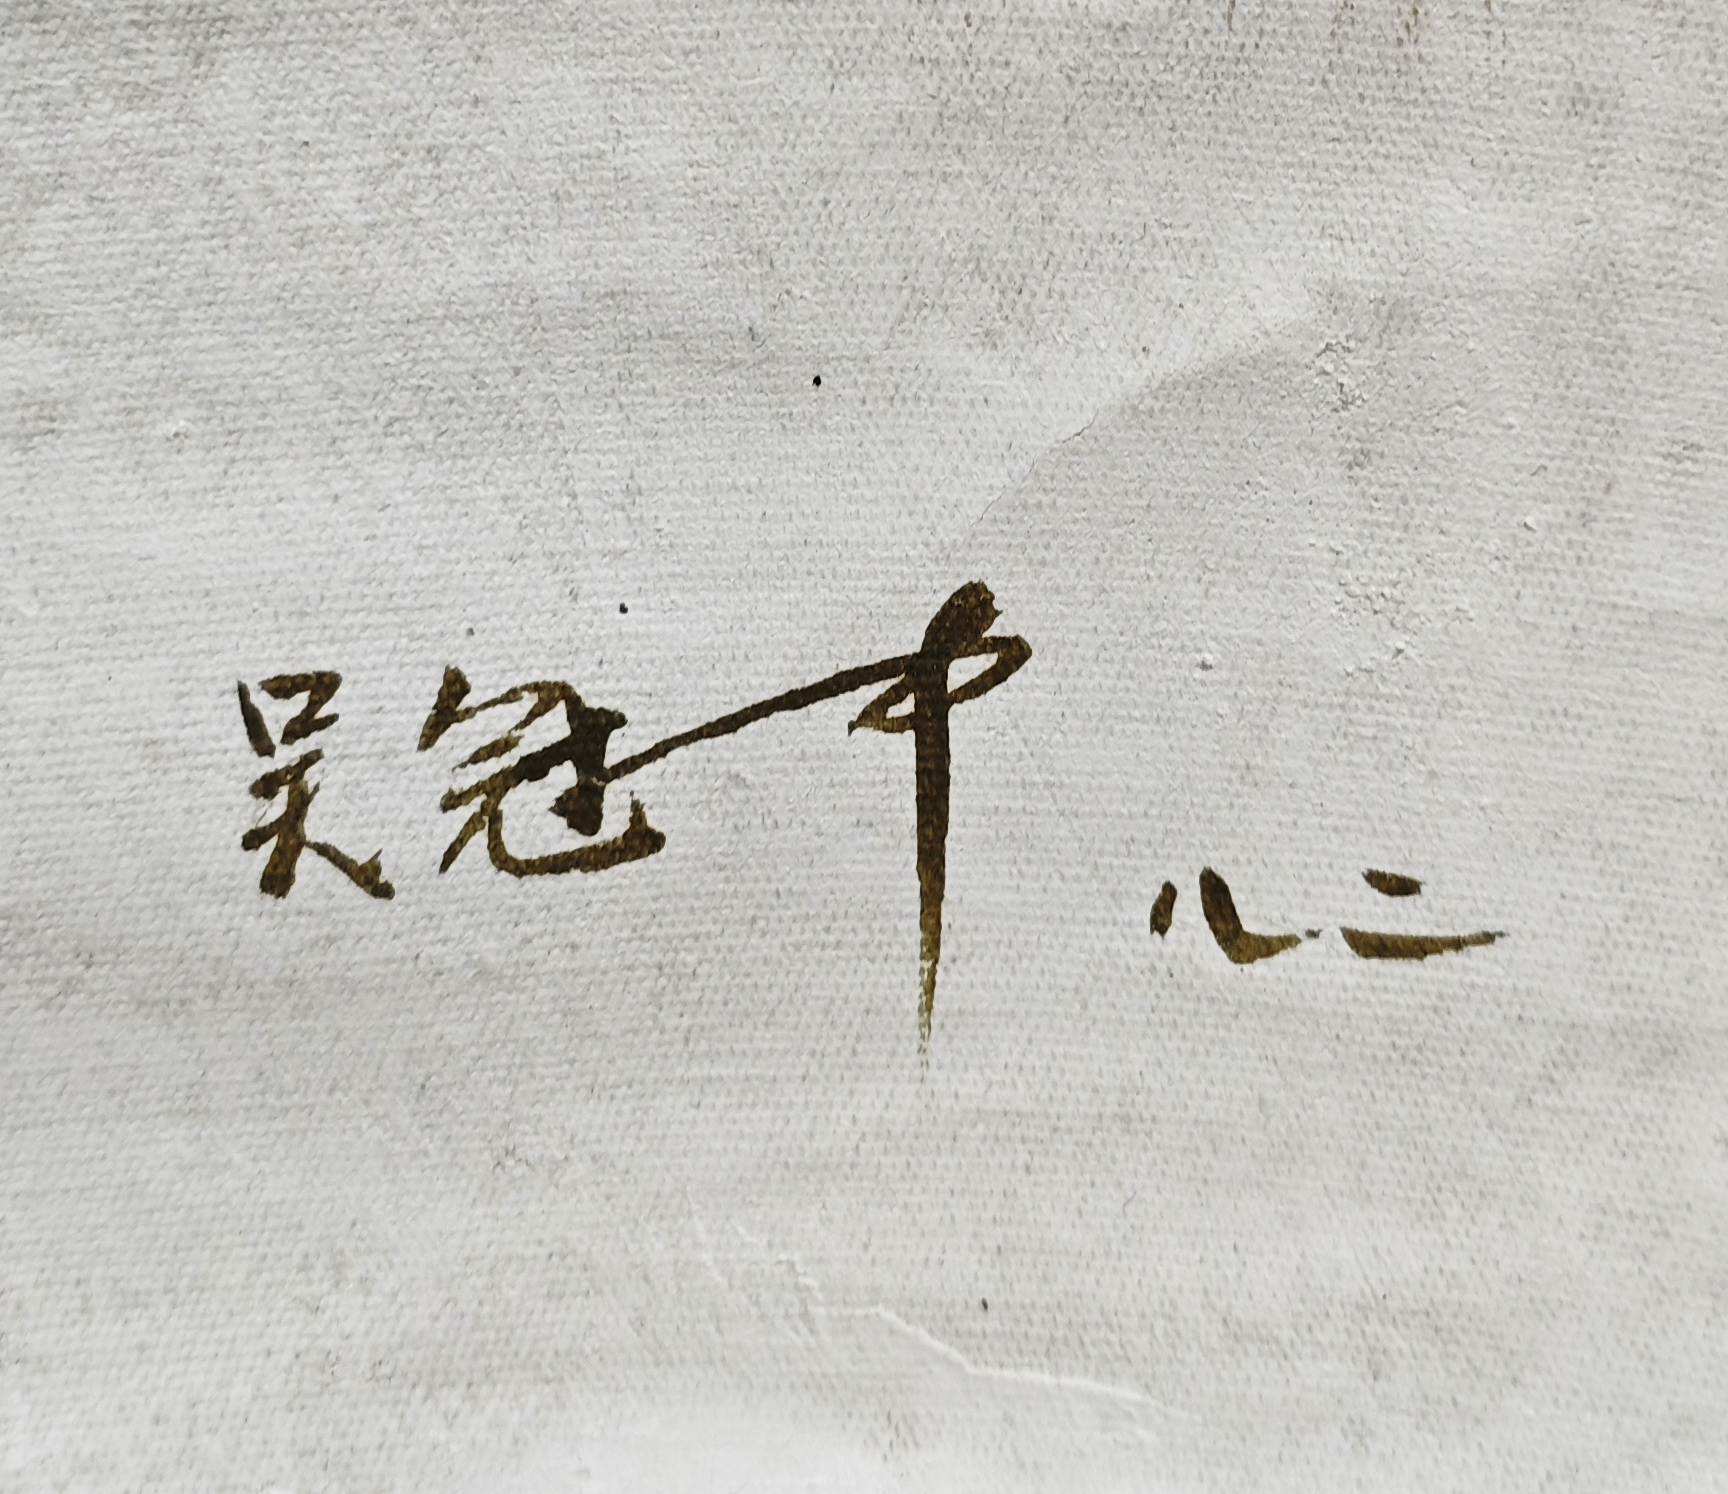 吴冠中 八二